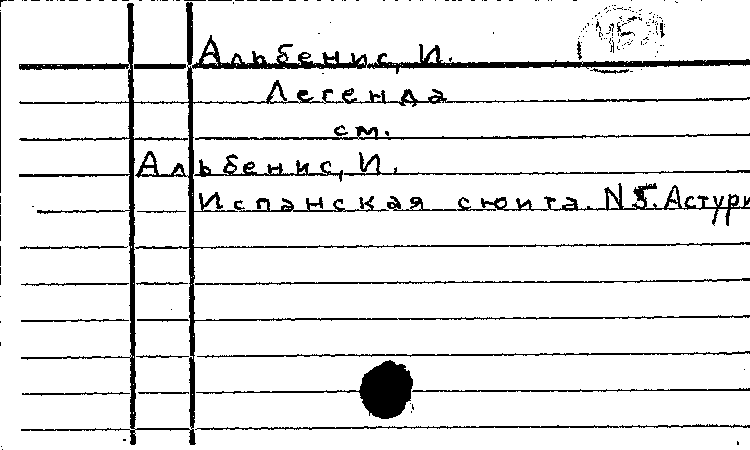 Альбенис, И.
Легенда
см.
Альбенис, И.
Испанская сюита. N 5. Астури